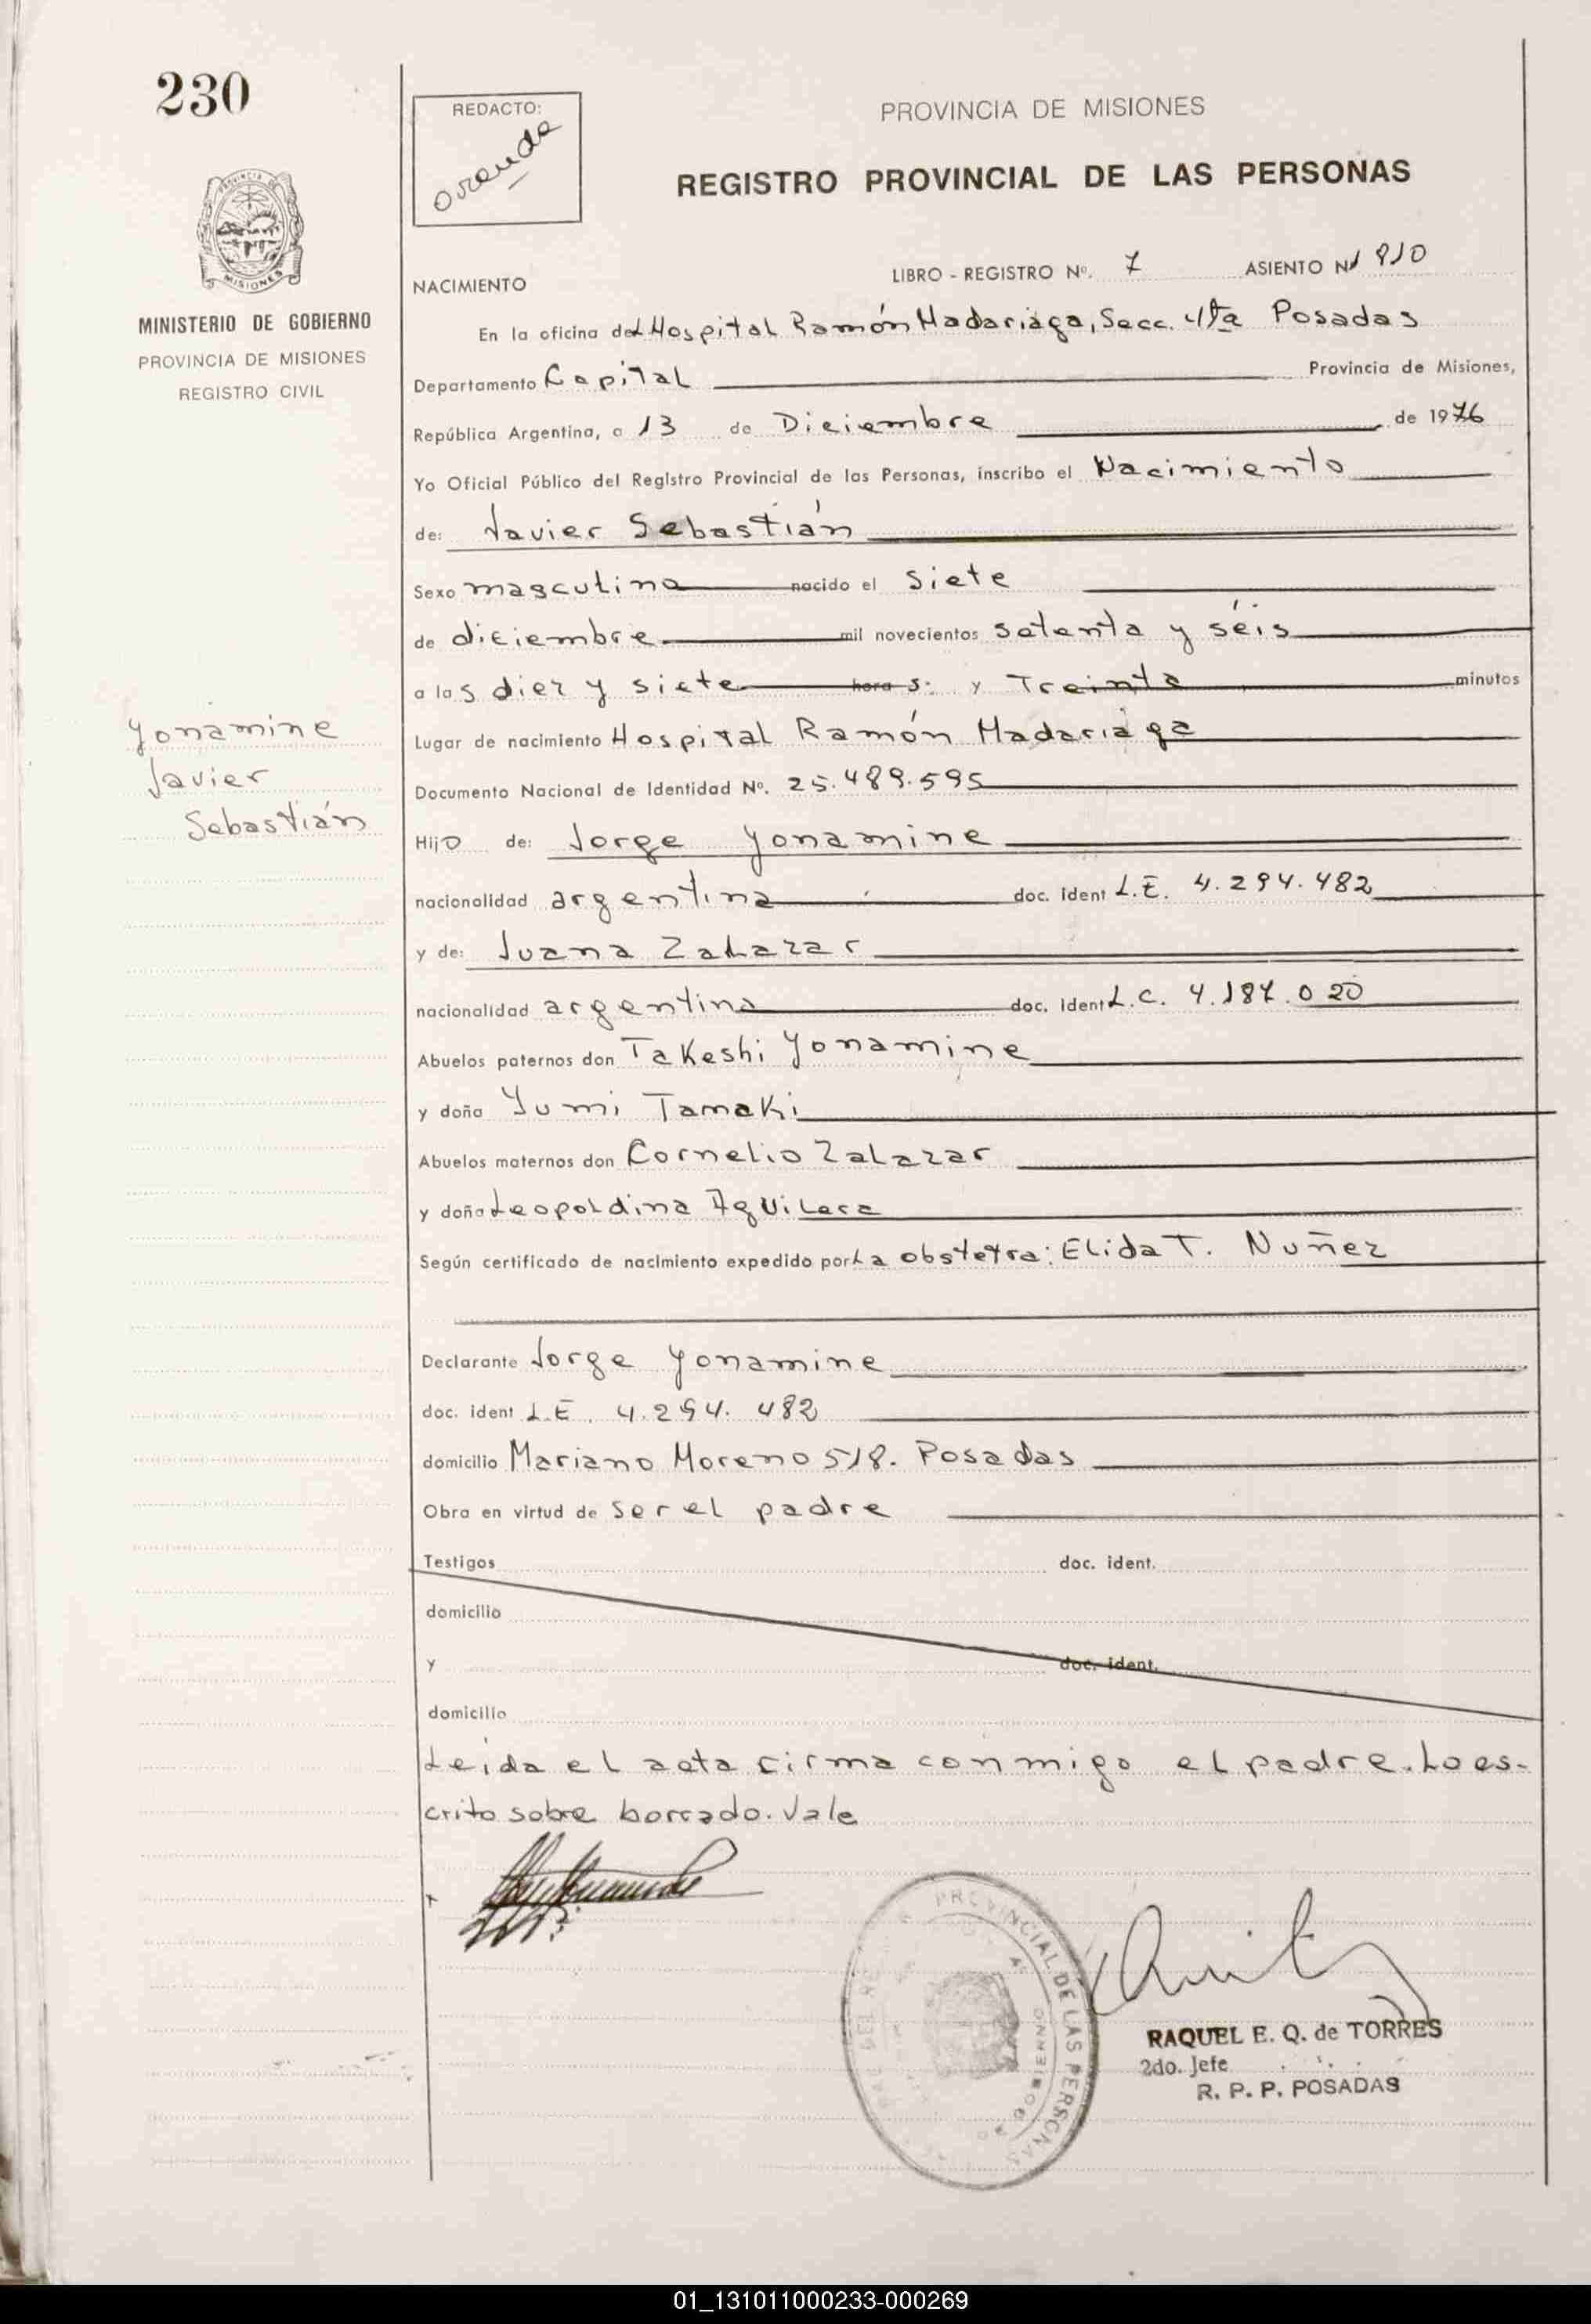 230
REDACTO:
PROVINCIA DE MISIONES
REGISTRO PROVINCIAL DE LAS PERSONAS
MINISTERIO DE GOBIERNO
PROVINCIA DE MISIONES
REGISTRO CIVIL
NACIMIENTO
LIBRO - REGISTRO Nº. 7 ASIENTO Nº 1810
En la oficina del Hospital Ramón Madariaga, Secc. 4ta Posadas
Departamento Capital Provincia de Misiones,
República Argentina, a 13 de Diciembre de 1976
Yo Oficial Público del Registro Provincial de las Personas, inscribo el Nacimiento
de: Javier Sebastián
Sexo masculino nacido el siete
de diciembre mil novecientos setenta y séis
a las diez y siete horas: y Treinta minutos
Yonamine
Javier
Sebastián
Lugar de nacimiento Hospital Ramón Madariaga
Documento Nacional de Identidad Nº. 25.489.595
Hijo de: Jorge Yonamine
nacionalidad argentina doc. ident L.E. 4.294.482
y de: Juana Zalazar
nacionalidad argentina doc. ident L.C. 4.187.020
Abuelos paternos don Takeshi Yonamine
y doña Yumi Tamaki
Abuelos maternos don Cornelio Zalazar
y doña Leopoldina Aguilera
Según certificado de nacimiento expedido por La obstetra: Elida T. Nuñez
Declarante Jorge Yonamine
doc. ident L.E. 4.294.482
domicilio Mariano Moreno 518. Posadas
Obra en virtud de ser el padre
Testigos doc. ident.
domicilio
y doc. ident.
domicilio
Leida el acta firma conmigo el padre. Lo es-
crito sobre borrado. Vale
PROVINCIAL DE LAS PERSONAS
RAQUEL E. Q. de TORRES
2do. Jefe
R. P. P. POSADAS
01_131011000233-000269